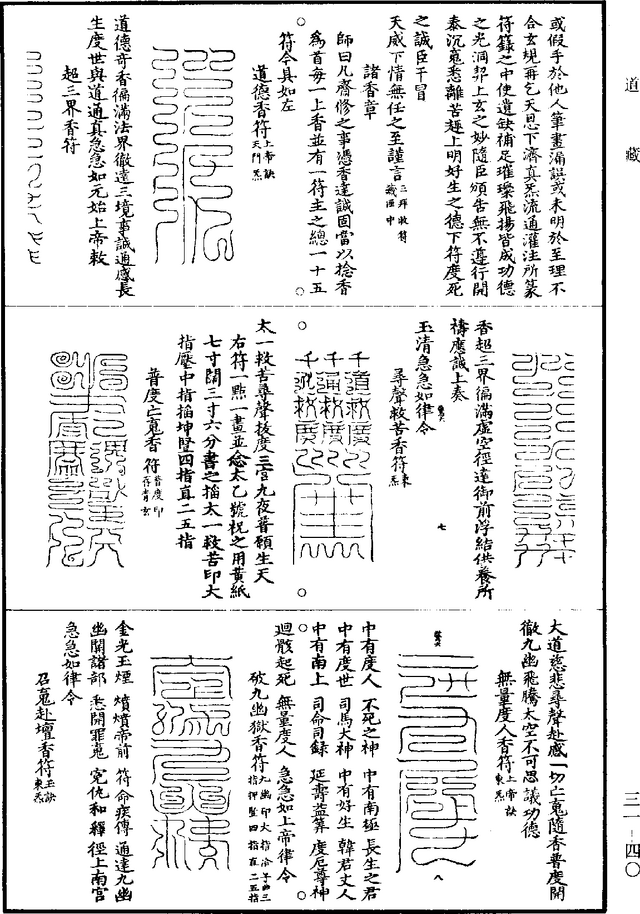 道藏
三一—四〇
或假手於他人筆畫漏誤或未明於至理不
合玄規再乞天恩下濟真炁流通灌注所篆
符籙之中使遺缺補足璀璨飛揚皆成功德
之光洞鄣上玄之妙隨臣頒告無不遵行開
泰沉冤悉離苦趣上明好生之德下符度死
之誠臣干冒
天威下情無任之至謹言三拜收符籙匣中
諸香章
師曰凡齋修之事憑香達誠固當以捻香
為首每一上香並有一符主之總一十五
符今具如左
道德香符上帝訣天門炁
道德奇香徧滿法界徹達三境事誠通感長
生度世與道通真急急如元始上帝敕
超三界香符
香超三界徧滿虛空徑達御前浮結供養所
禱應誠上奏
玉清急急如律令
七
尋聲救苦香符東炁
千道救度
千浦救度
千就救度
太一救苦尋聲拔度三官九夜普願生天
右符一點一畫並念太乙號祝之用黃紙
七寸闊三寸六分書之掐太一救苦印大
指壓中指掐坤豎四指直二五指
普度亡䰟香符普度印存青玄
大道慈悲尋聲赴感一切亡䰟隨香普度開
徹九幽飛騰太空不可思議功德
無量度人香符上帝訣東炁
中有度人 不死之神 中有南極 長生之君
中有度世 司馬大神 中有好生 韓君丈人
中有南上 司命司錄 延壽益筭 度厄尊神
迴骸起死 無量度人 急急如上帝律令
破九幽獄香符
金光玉煙 燌燌帝前 符命疾傳 通達九幽
幽關諸部 悉開罪䰟 冤仇和釋 徑上南宮
急急如律令
召䰟赴壇香符玉訣東炁